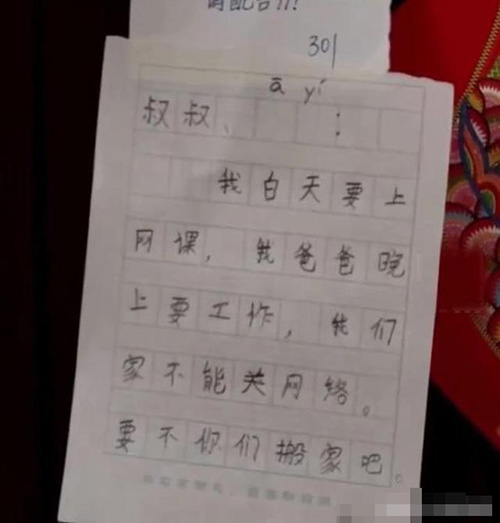 请配合!!
301
ā yí
叔叔、 :
我白天要上
网课，我爸爸晚
上要工作，我们
家不能关网络。
要不你们搬家吧。